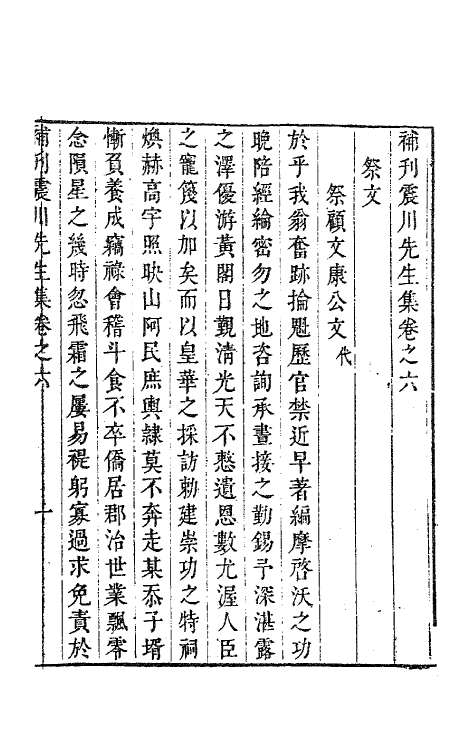 補刊震川先生集卷之六
祭文
祭顧文康公文代
於乎我翁奮跡掄魁歷官禁近早著編摩啓沃之功
晚陪經綸密勿之地咨詢承晝接之勤錫予深湛露
之澤優游黃閣日覲清光天不憗遺恩數尤渥人臣
之寵篾以加矣而以皇華之採訪勑建崇功之特祠
煥赫高宇照映山阿民庶輿隷莫不奔走某忝子壻
慚負養成竊祿會稽斗食不卒僑居郡治世業飄零
念隕星之幾時忽飛霜之屢易褆躬寡過求免責於
補刊震川先生集卷之六
一